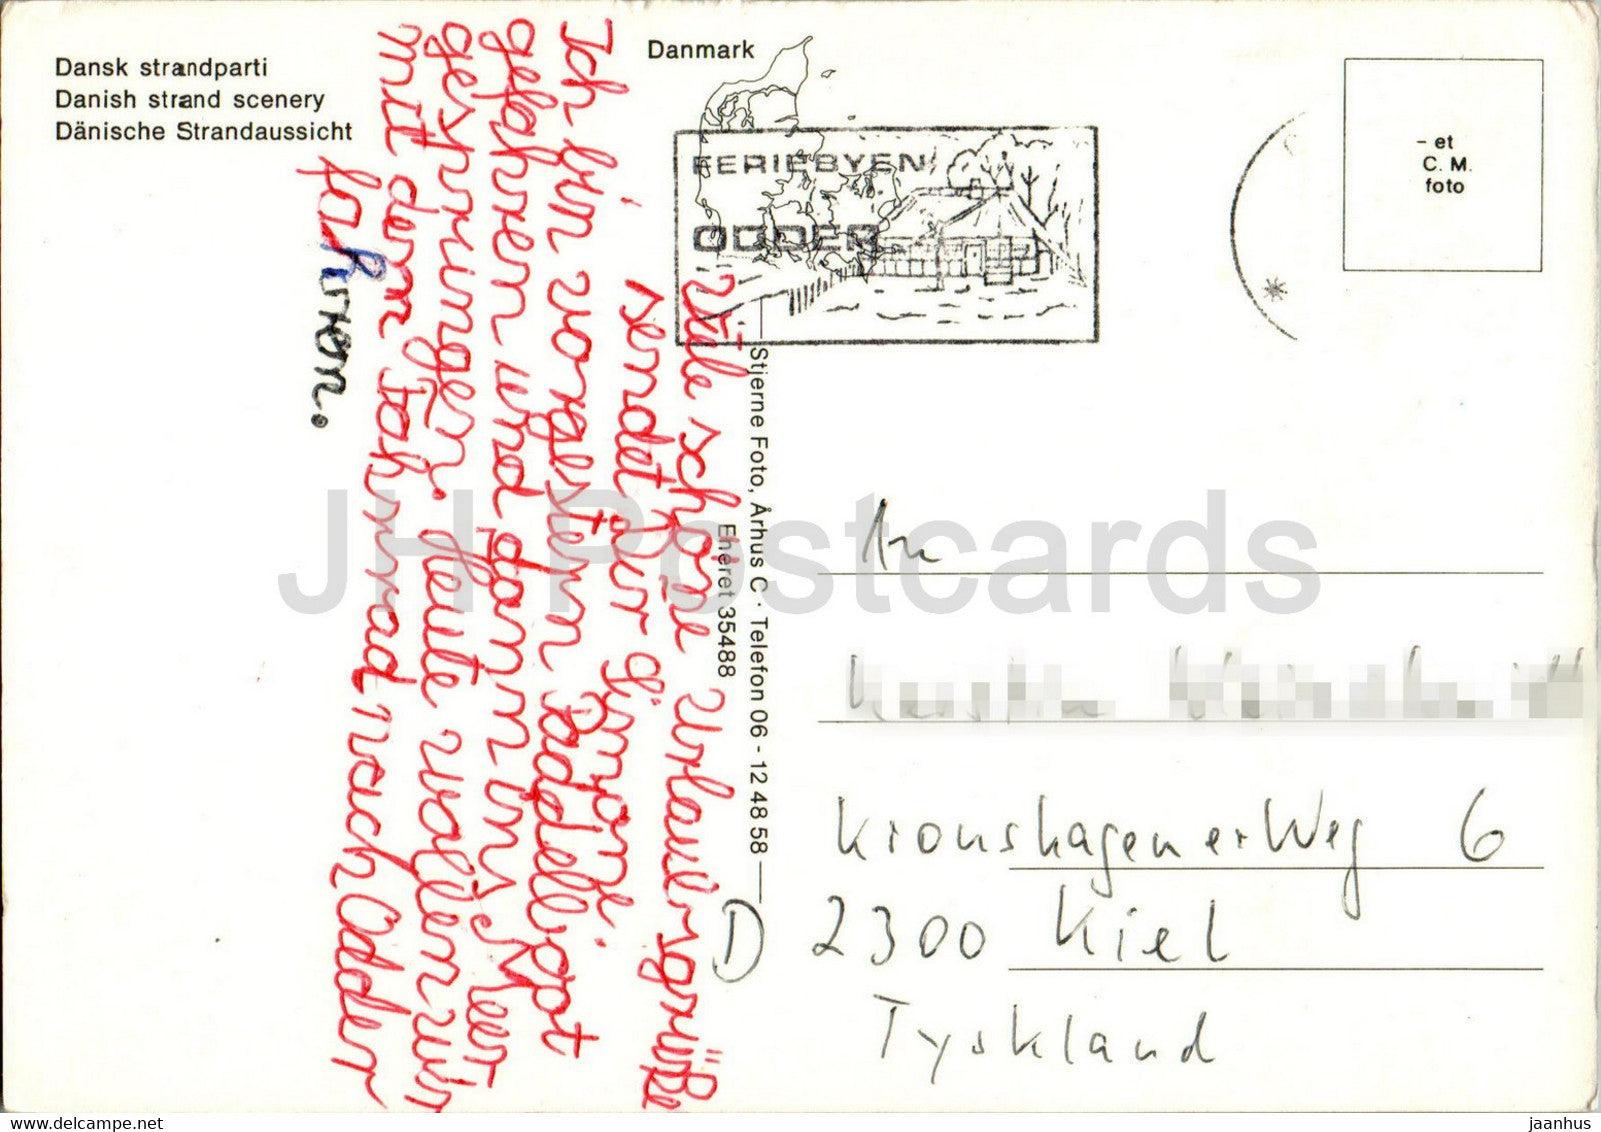 Dansk strandparti
Danish strand scenery
Dänische Strandaussicht
Danmark
FERIEBYEN
ODDER
- et
C. M.
foto
Stjerne Foto, Århus C · Telefon 06 - 12 48 58
Eneret 35488
Viele schöne Urlaubsgrüße
sendet Dir
Ich bin vorgestern Paddelboot
gefahren und dann ins Meer
gesprungen. Heute wollen wir
mit dem Fahrrad nach Odder
fahren.
An
Kronshagener Weg 6
D 2300 Kiel
Tyskland
JH Postcards
delcampe.net
jaanhus